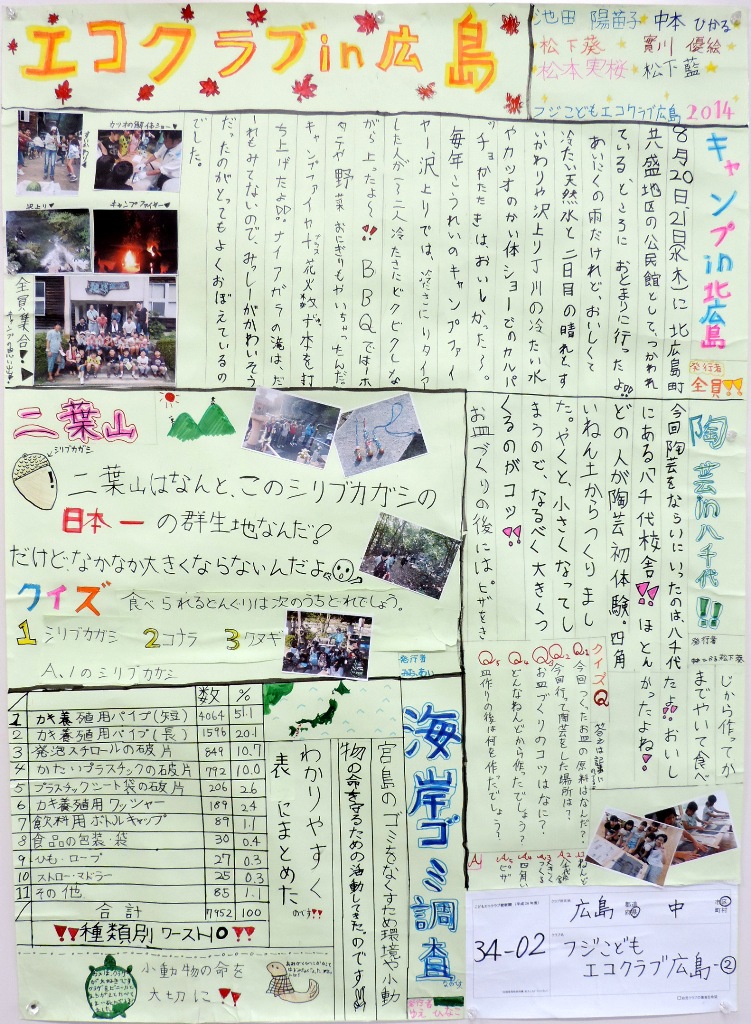 エコクラブin広島
池田 陽苗子 中本 ひかる
松下葵 寳川 優絵
松本実桜 松下藍
フジこどもエコクラブ広島 2014
キャンプin北広島
発行者
全員!!
8月20日、21日(水、木)に 北広島町
共盛地区の公民館として、つかわれ
ている、ところに おとまりに行ったよ!!
あいにくの雨だけれど、おいしくて
冷たい天然水と二日目の晴れと、す
いかわりや沢上り丁川の冷たい水
やカツオのかい体ショーでのカルパ
ッチョがたたきはおいしかった〜。
毎年こうれいのキャンプファイ
ヤー沢上りでは、冷さにリタイア
した人が一〜二人冷たさにビクビクしな
がら上ったよ〜!! BBQではーホ
タテや野菜おにぎりもやいちゃったんだ
キャンプファイヤー+プラス花火数ず本を打
ち上げたよDD"ナイフガラの滝は、だ
れもみてないので、みっしーがかわいそう
だったのがとってもよくおぼえているの
でした。
すいかわり
カツオの解体ショー♥
沢上り♥
キャンプファイヤー♥
全員集合!
キャンプの思い出♥
二葉山
シリブカガシ
二葉山はなんと、このシリブカガシの
日本一の群生地なんだ!
だけど、なかなか大きくならないんだよ。
クイズ 食べられるどんぐりは次のうちどれでしょう。
1 シリブカガシ 2 コナラ 3 クヌギ
A.1のシリブカガシ
発行者
みお、あい
陶芸in八千代!!
発行者
今回陶芸をならいにいったのは、八千代
にある「八千代校舎」!! ほとん
どの人が陶芸初体験。四角
いねん土からつくりまし
た。やくと、小さくなってし
まうので、なるべく大きくつ
くるのがコツ!!
お皿づくりの後には。ピザをき
じから作ってか
までやいて食べ
たよ!!おいし
かったよね!
クイズQ
Q1 今回つくったお皿の原料はなんだ?
Q2 今回行って陶芸をした場所は?
Q3 お皿づくりのコツはなに?
Q4 どんなねんどから作ったでしょう?
Q5 皿作りの後は何を作ったでしょう?
A1 ねんど
A2 八千代校舎
A3 大きくつくる
A4 四角い
A5 ピザ
海岸ゴミ調査
発行者
ゆえ ひなこ
宮島のゴミをなくすため環境や小動
物の命を守るための活動してきた。のです!!
わかりやすく
表 にまとめた
のです!!
数 %
1 カキ養殖用パイプ(短) 4064 51.1
2 カキ養殖用パイプ(長) 1596 20.1
3 発泡スチロールの破片 849 10.7
4 かたいプラスチックの破片 792 10.0
5 プラスチックシート袋の破片 206 2.6
6 カキ養殖用ワッシャー 189 2.4
7 飲料用ボトルキャップ 89 1.1
8 食品の包装・袋 30 0.4
9 ひも・ロープ 27 0.3
10 ストロー・マドラー 25 0.3
11 その他 85 1.1
合計 7952 100
!!種類別ワースト10!!
小動物の命を
大切に!!
広島 中
34-02
フジこども
エコクラブ広島-②